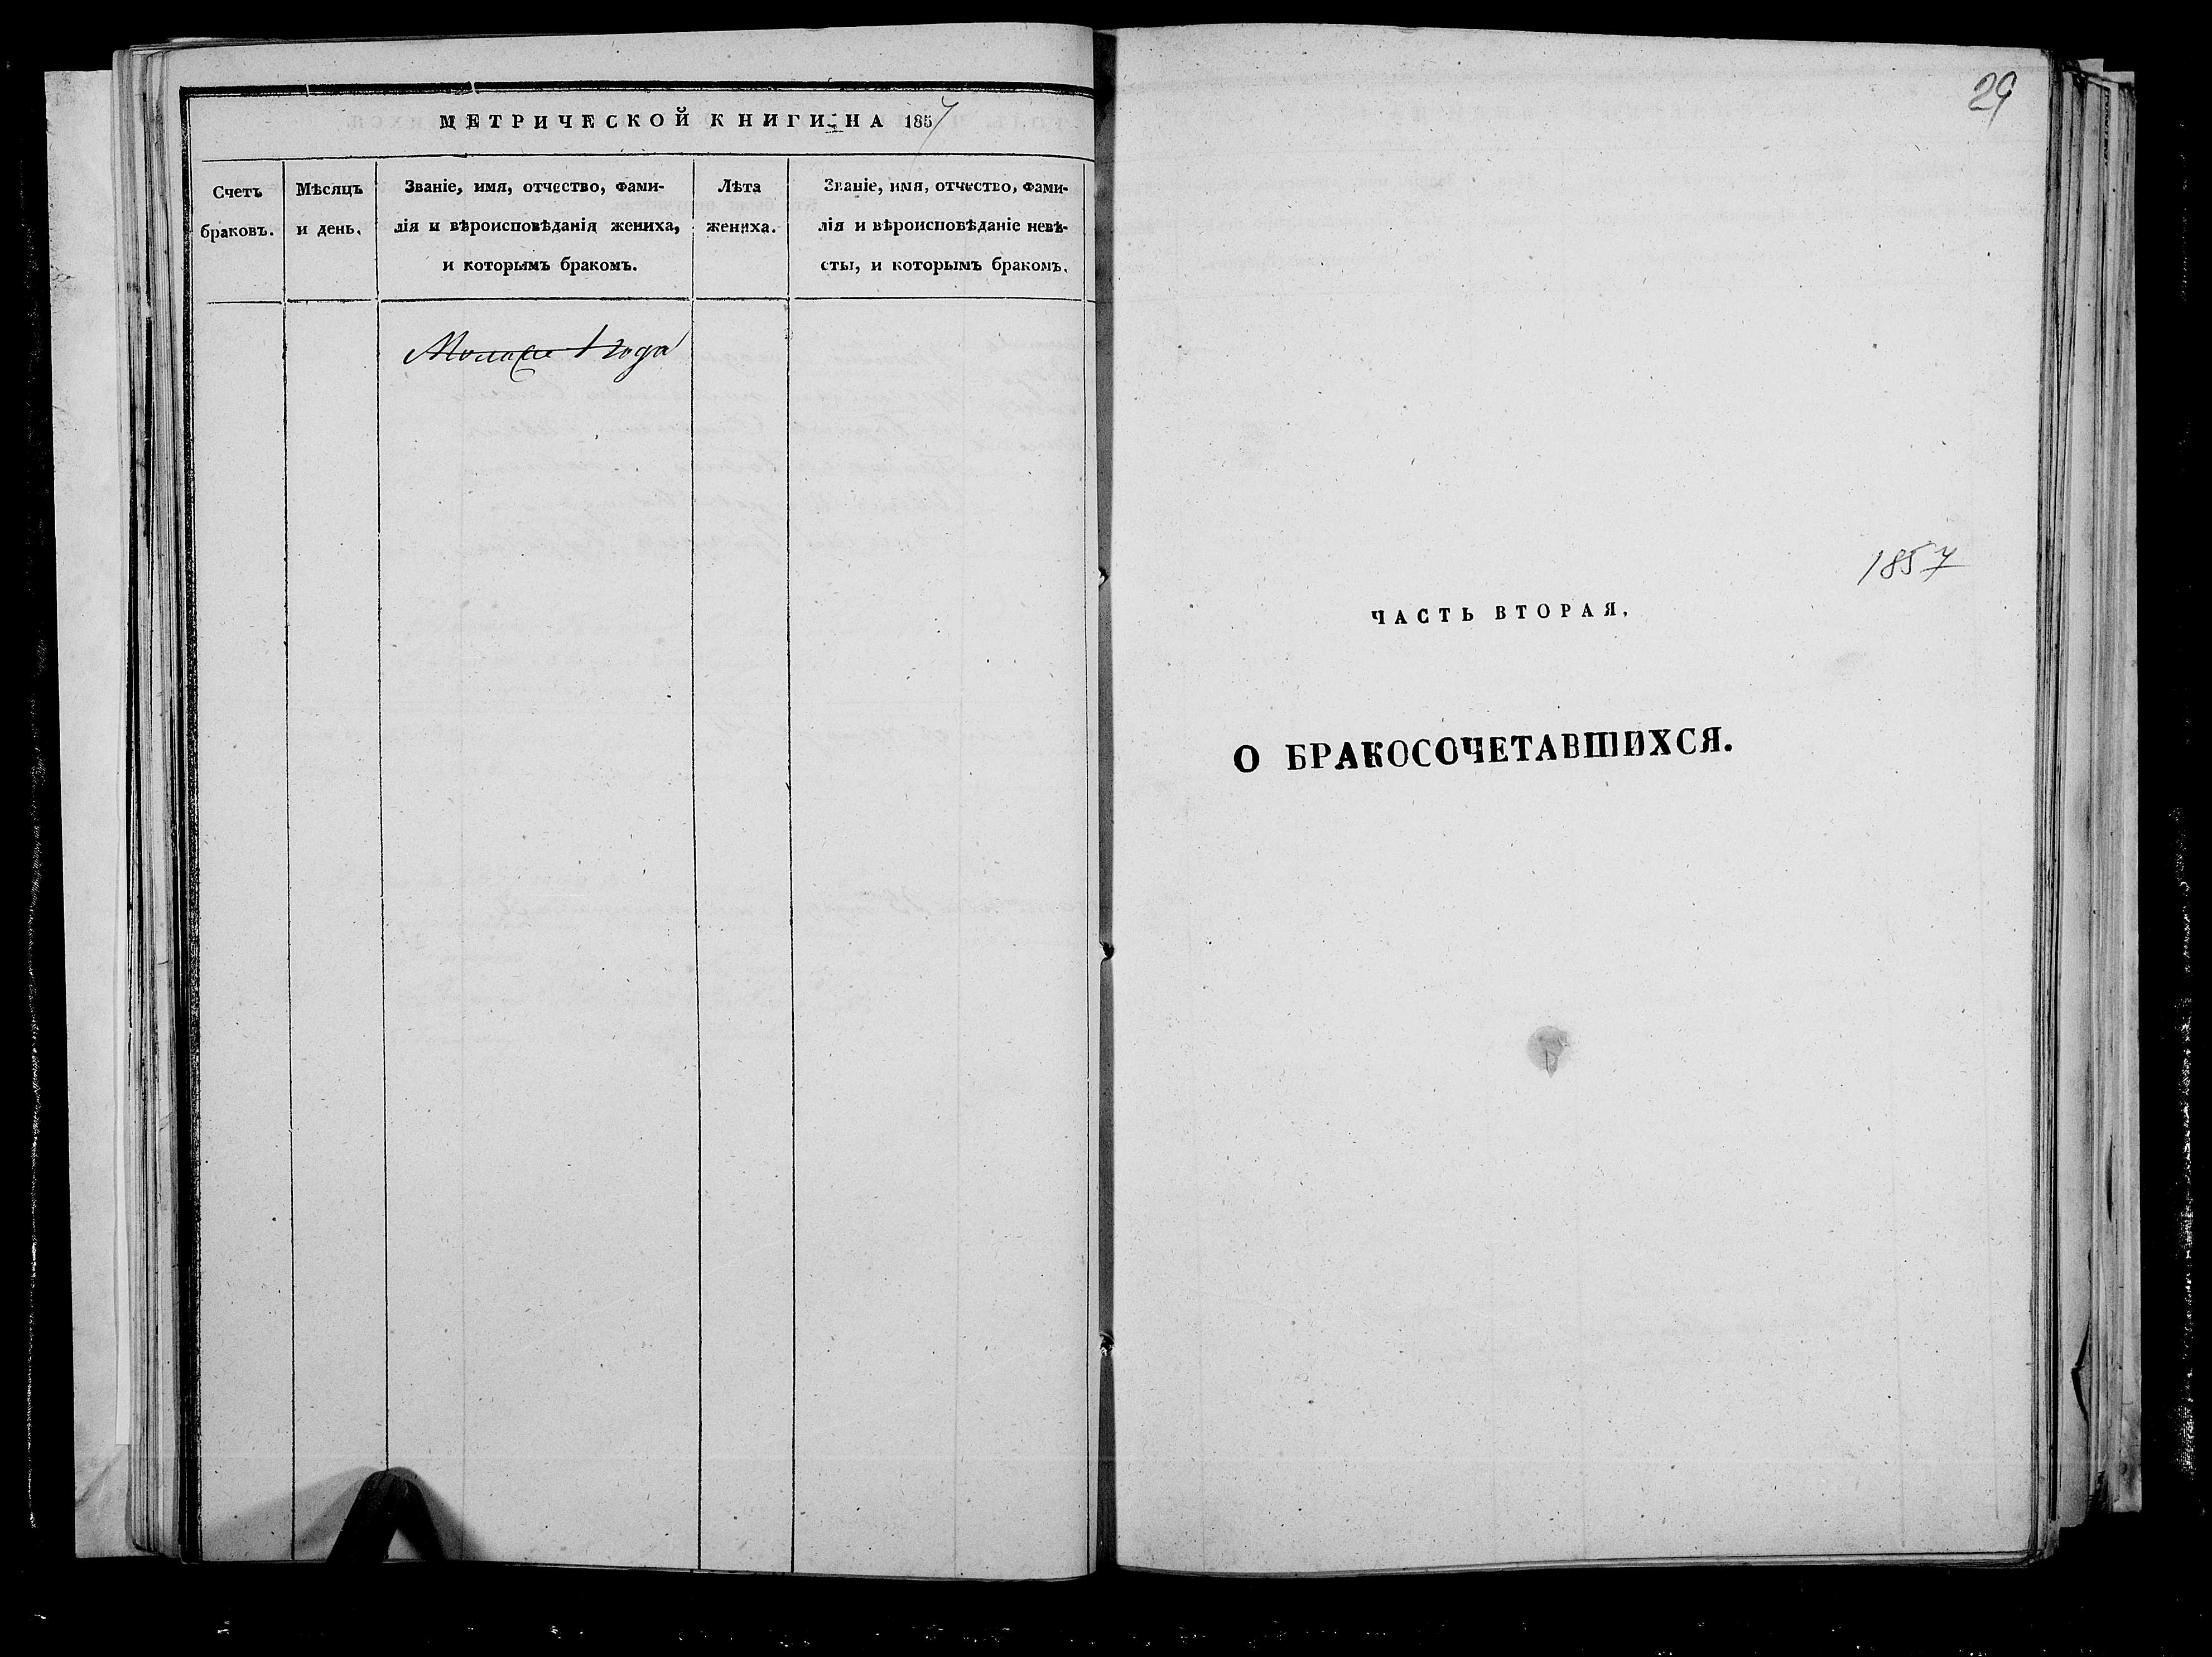 МЕТРИЧЕСКОЙ КНИГИ НА 1857
Счетъ
браковъ.
Мѣсяцъ
и день.
Званіе, имя, отчество, фами-
лія и вѣроисповѣданія жениха,
и которымъ бракомъ.
Лѣта
жениха.
Званіе, имя, отчество, фами-
лія и вѣроисповѣданіе невѣ-
сты, и которымъ бракомъ.
года
29
1857
ЧАСТЬ ВТОРАЯ.
О БРАКОСОЧЕТАВШИХСЯ.